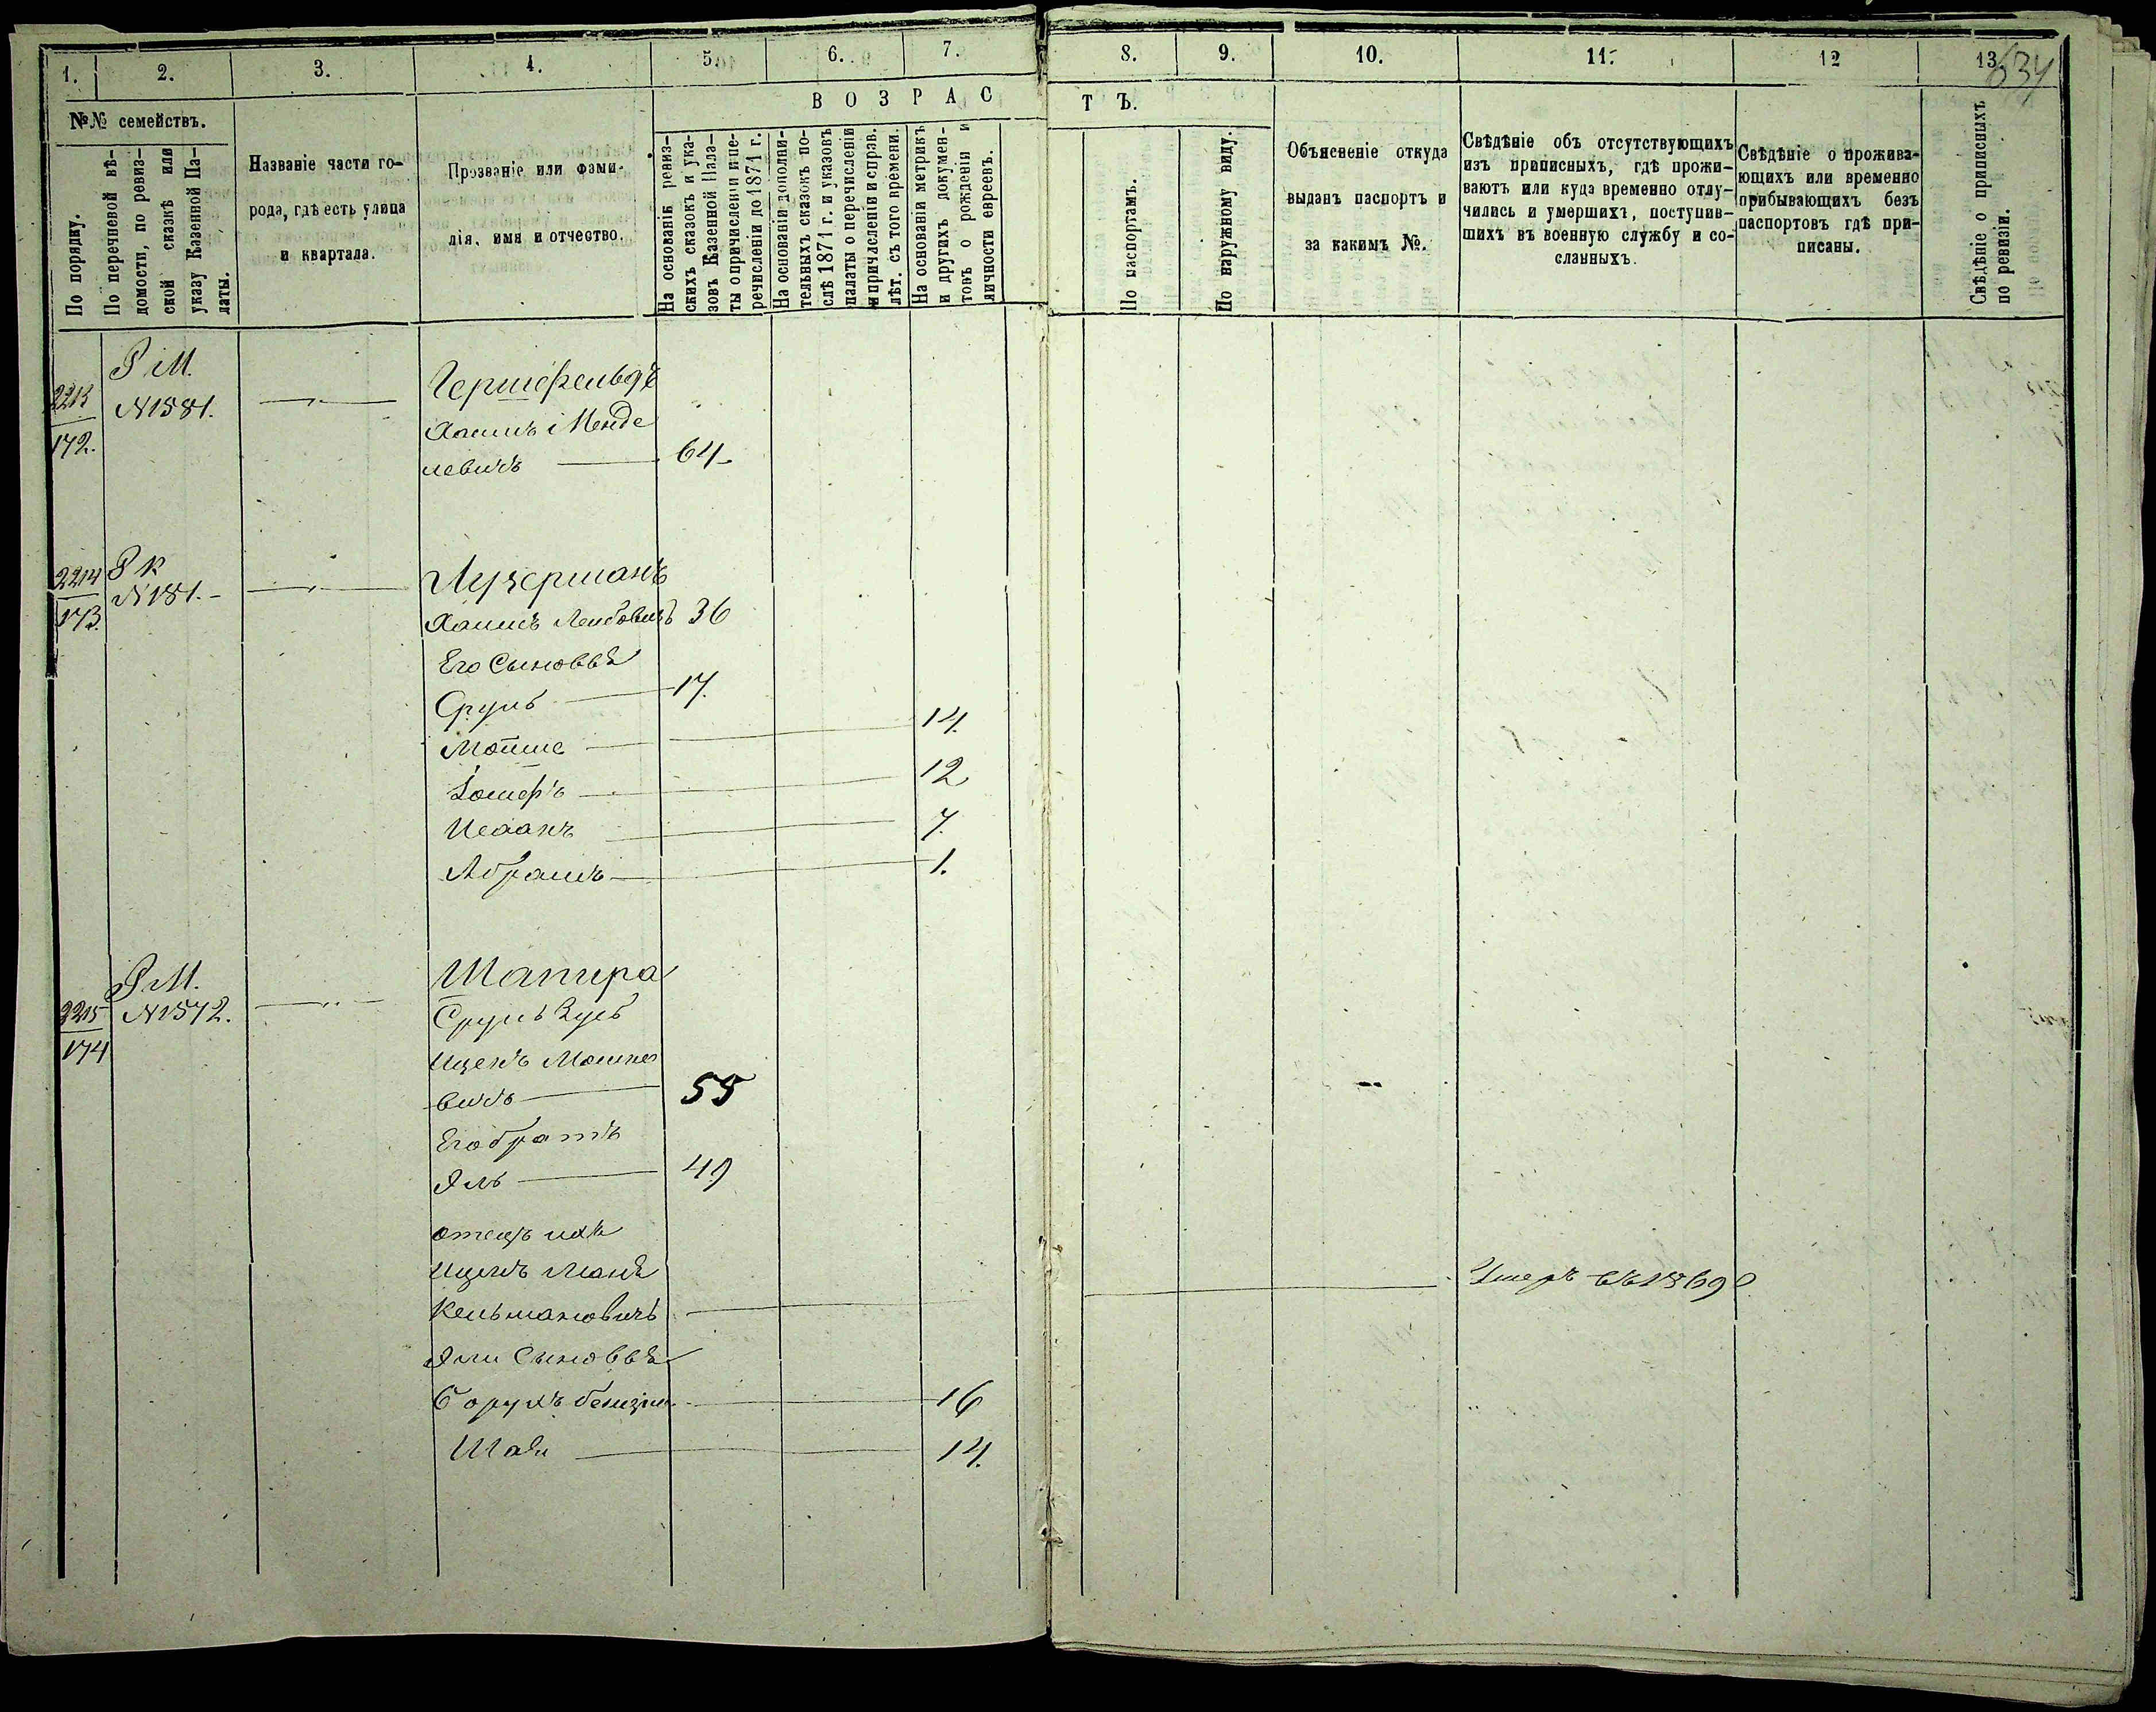 1. 2. 3. 4. 5. 6. 7. 8. 9. 10. 11. 12 13.
634
ВОЗРАСТЪ.
№№ семействъ.
По порядку.
По перечневой вѣ-
домости, по ревиз-
ской сказкѣ или
указу Казенной Па-
латы.
Названіе части го-
рода, гдѣ есть улица
и квартала.
Прозваніе или фами-
лія, имя и отчество.
На основаніи ревиз-
скихъ сказокъ и ука-
зовъ Казенной Пала-
ты о причисленіи и пе-
речисленіи до 1871 г.
На основаніи дополни-
тельныхъ сказокъ по-
слѣ 1871 г. и указовъ
палаты о перечисленіи
и причисленіи и справ.
лѣт. съ того времени.
На основаніи метрикъ
и другихъ докумен-
товъ о рожденіи и
личности евреевъ.
По паспортамъ.
По наружному виду.
Объясненіе откуда
выданъ паспортъ и
за какимъ №.
Свѣдѣніе объ отсутствующихъ
изъ приписныхъ, гдѣ прожи-
ваютъ или куда временно отлу-
чились и умершихъ, поступив-
шихъ въ военную службу и со-
сланныхъ.
Свѣдѣніе о прожива-
ющихъ или временно
прибывающихъ безъ
паспортовъ гдѣ при-
писаны.
Свѣдѣніе о приписныхъ
по ревизіи.
2213
172.
Р М.
№1581.
Гершфельдъ
Хаимъ Менде
левичъ 64
2214
173.
Р К
№181.
Луcерманъ
Хаимъ Лейбовичъ 36
Его Сыновья
Сруль 17.
Мойше 14.
Іосифъ 12
Исаакъ 7.
Абрамъ 1.
2215
174
Р М.
№1572.
Шапира
Сруль Зусь
Ицекъ Мошко
вичъ 55
Его братъ
Яль 49
отецъ ихъ
Мошъ
Кельмановичъ Умеръ въ 1869 г.
Яли Сыновья
Борухъ 16
Шая 14.